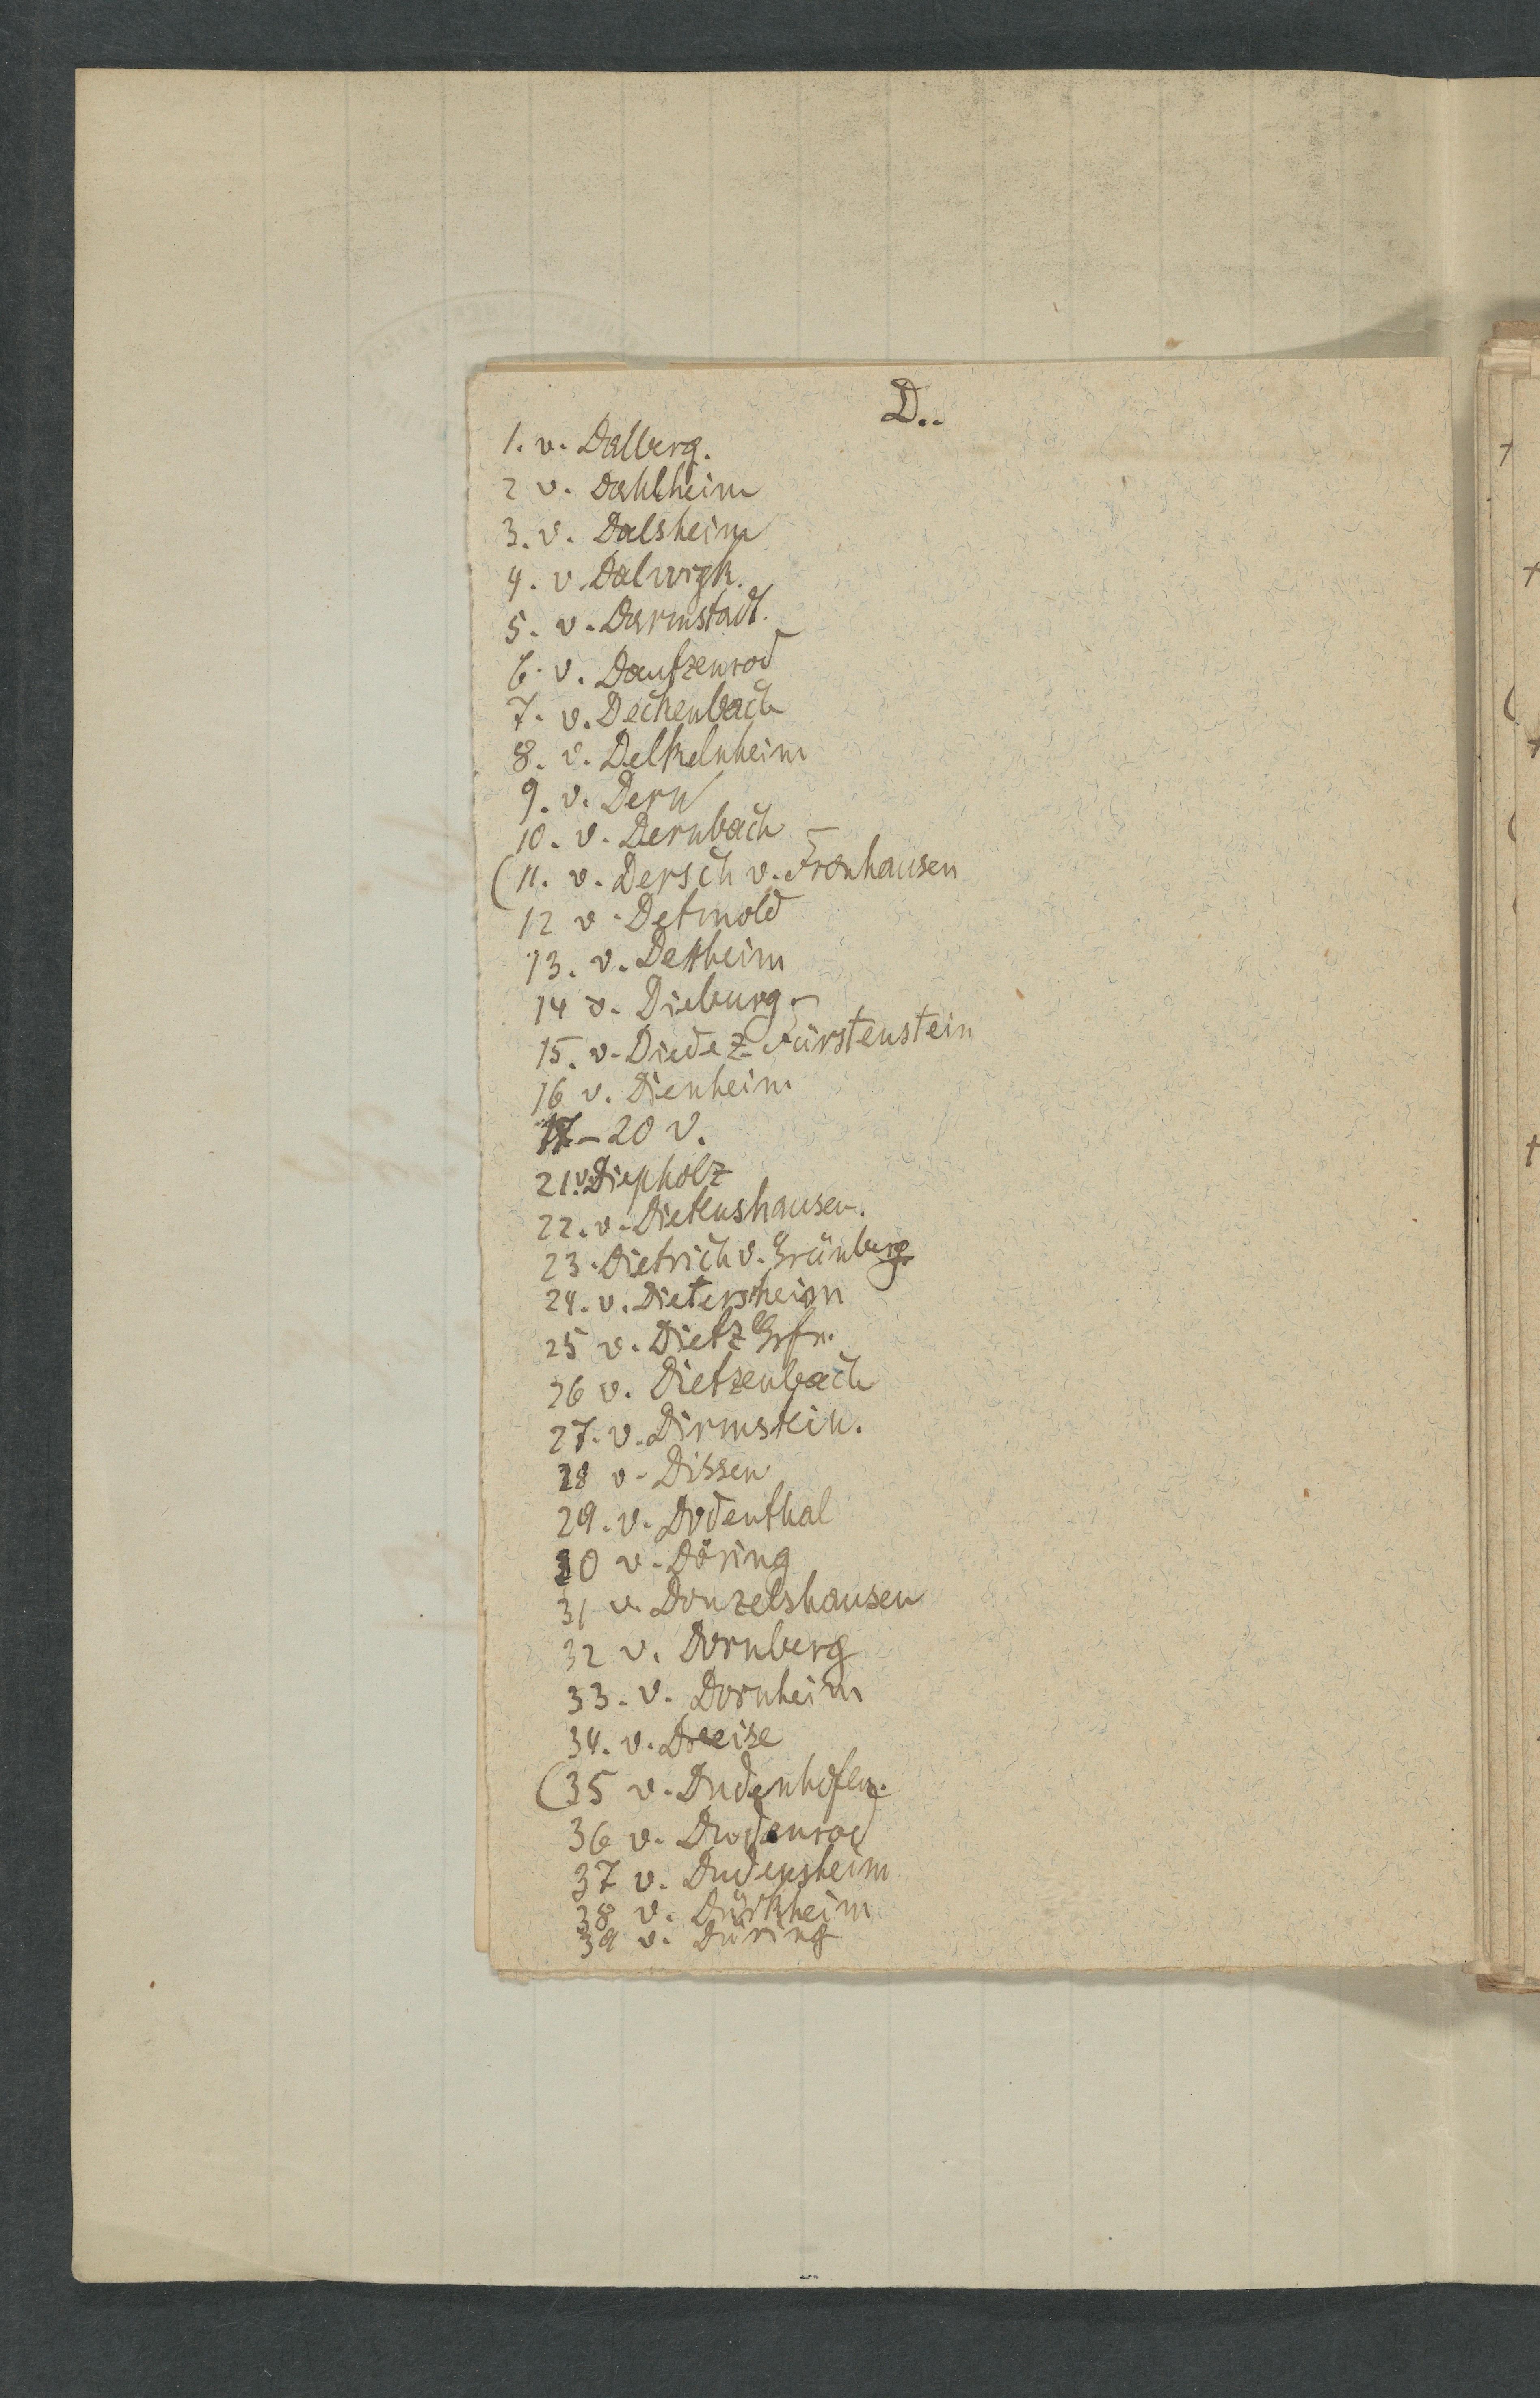 D..
1. v. Dalberg.
2 v. Dahlheim
3. v. Dalsheim
4. v. Dalwigk.
5. v. Darmstadt.
6. v. Dautzenrod
7. v. Deckenbach
8. v. Delkelnheim
9. v. Dern
10. v. Dernbach
(11. v. Dersch v. Fronhausen
12 v. Detmold
13. v. Dexheim
14 v. Dieburg
15. v. Diede z. Fürstenstein
16 v. Dienheim
17 - 20 v.
21. v. Diepholz
22. v. Dietenshausen.
23. Dietrich v. Grünberg
24. v. Dietersheim
25 v. Dietz Grfn.
26 v. Dietzenbach
27. v. Dirmstein.
28 v. Dissen
29. v. Dodenthal
30 v. Döring
31 v. Donzelshausen
32 v. Dornberg
33. v. Dornheim
34. v. Dreise
(35 v. Dudenhofen.
36 v. Dudenrod
37 v. Dudensheim
38 v. Dürkheim
39 v. Düring